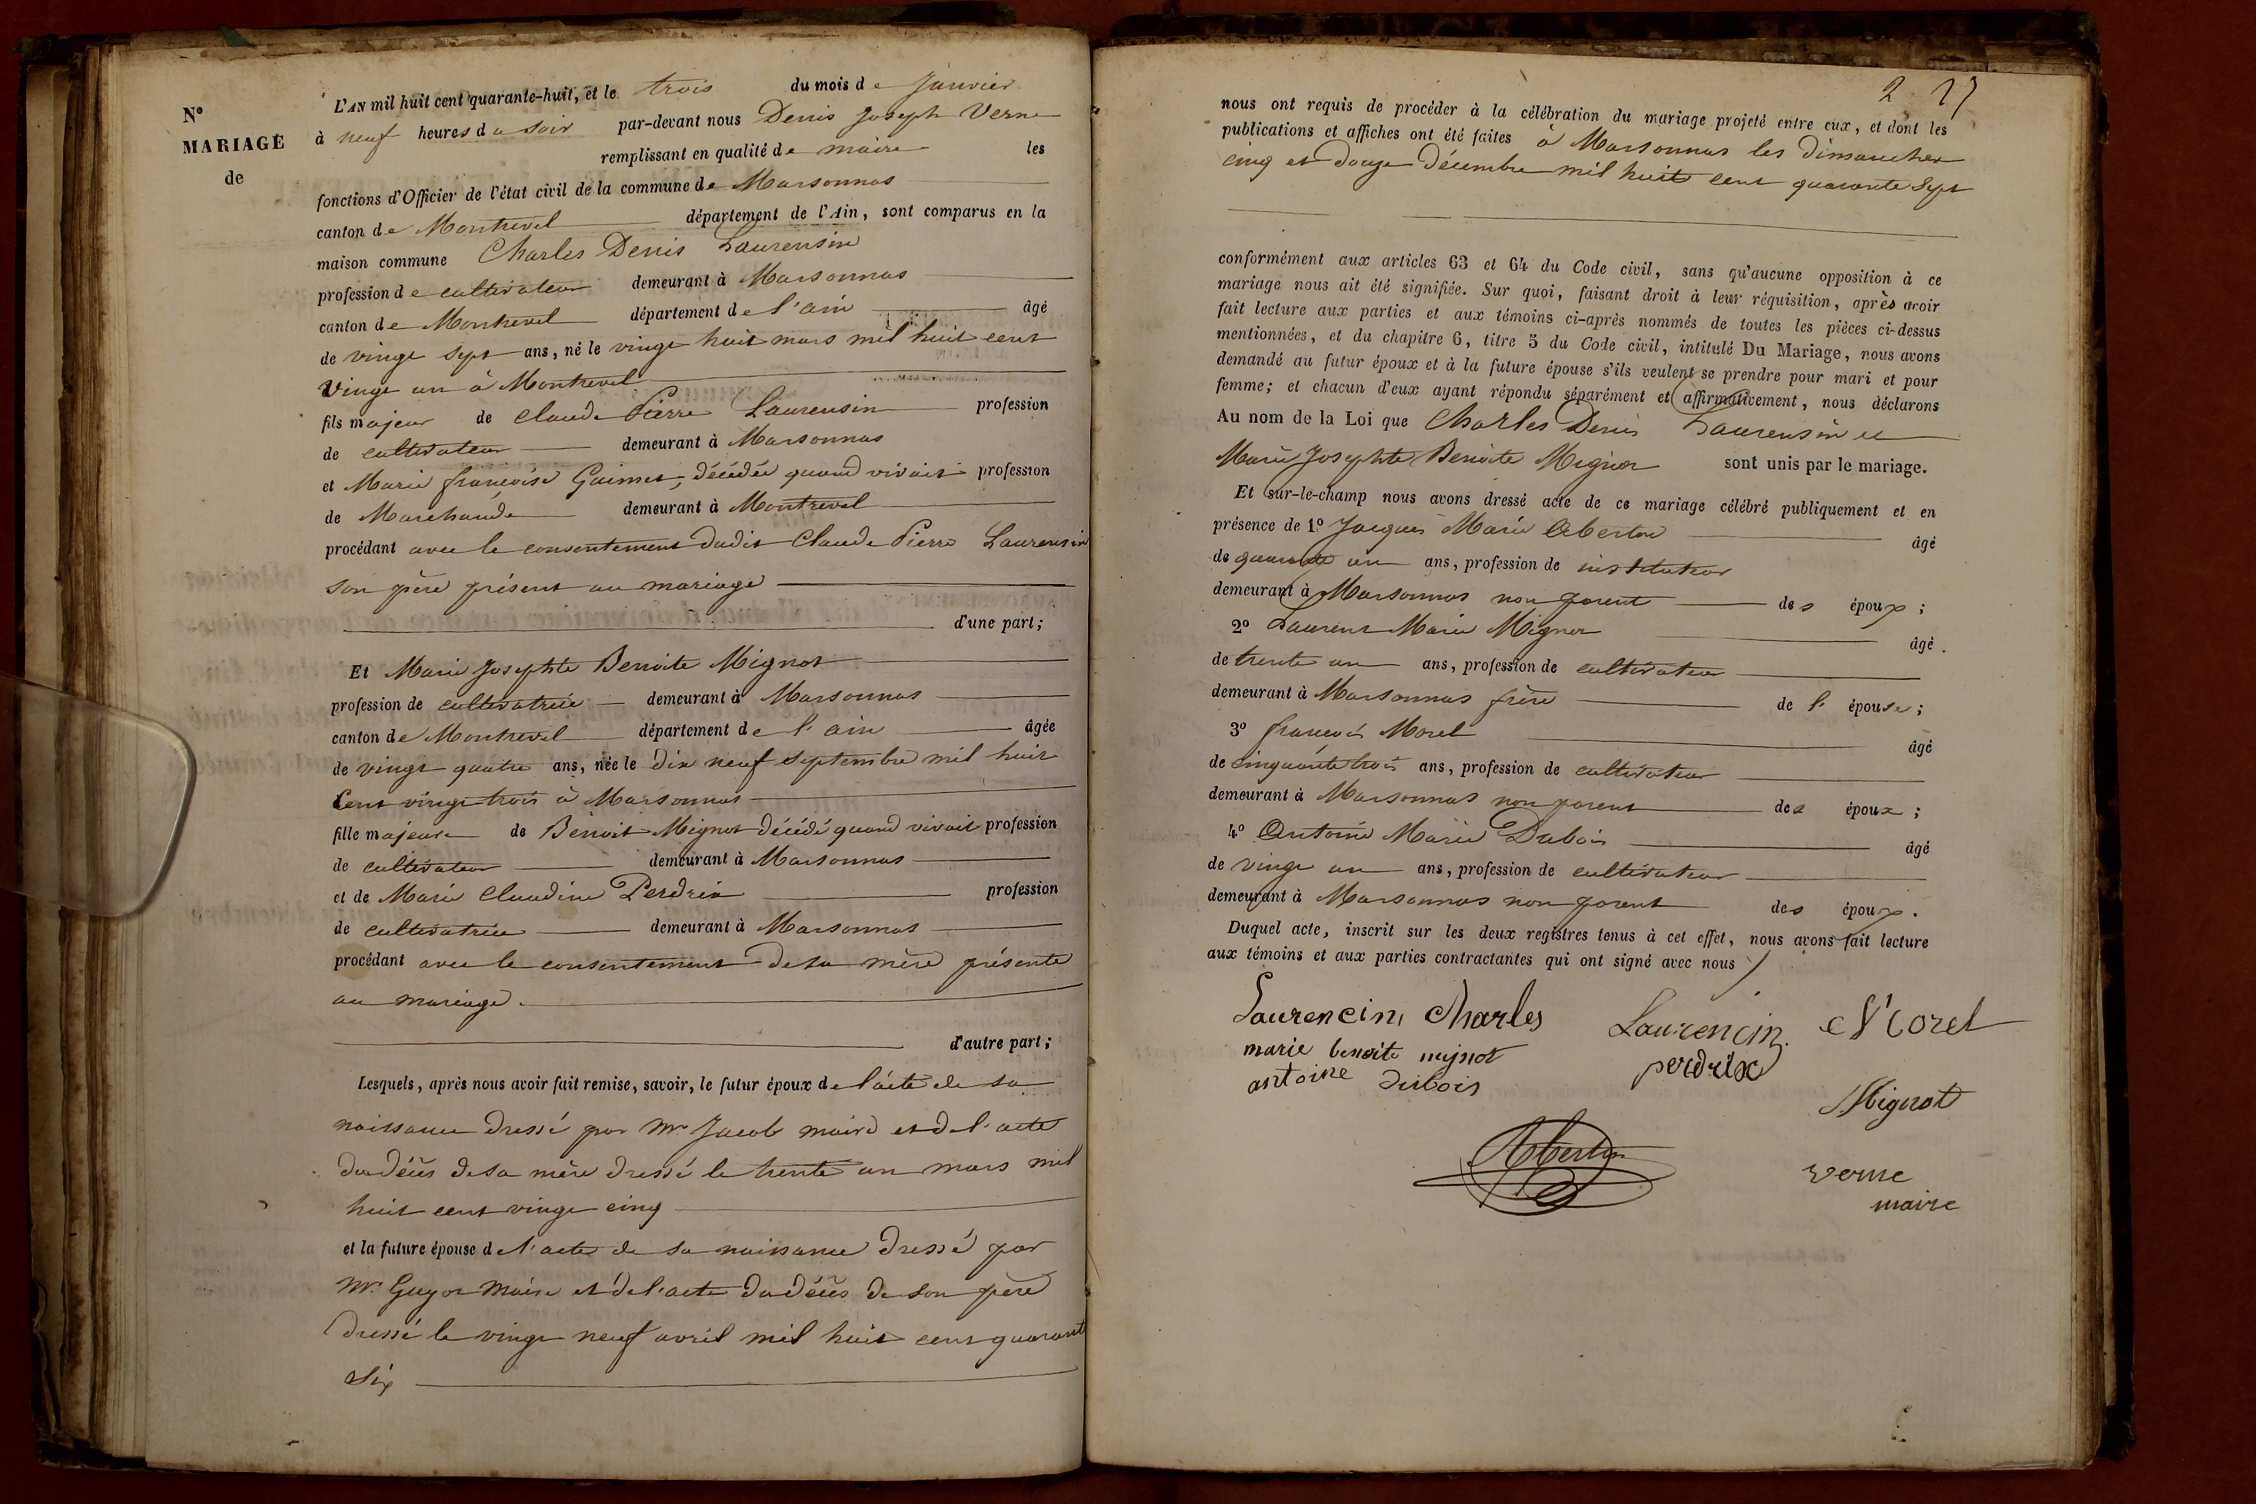 N°
MARIAGE
de
L'AN mil huit cent quarante-huit, et le trois du mois de Janvier
à neuf heures du soir par-devant nous Denis Joseph Verne
remplissant en qualité de maire les
fonctions d'Officier de l'état civil de la commune de Marsonnas
canton de Montrevel département de l'Ain, sont comparus en la
maison commune Charles Denis Laurensin
profession de cultivateur demeurant à Marsonnas
canton de Montrevel département de l'ain âgé
de vingt sept ans, né le vingt huit mars mil huit cent
vingt un à Montrevel
fils majeur de Claude Pierre Laurensin profession
de cultivateur demeurant à Marsonnas
et Marie françoise Guimet, décédée quand vivait profession
de Marchande demeurant à Montrevel
procédant avec le consentement dudit Claude Pierre Laurensin
son père présent au mariage
d'une part;
Et Marie Josephte Benoite Mignot
profession de cultivatrice demeurant à Marsonnas
canton de Montrevel département de l'ain âgée
de vingt quatre ans, née le dix neuf septembre mil huit
Cent vingt trois à Marsonnas
fille majeure de Benoit Mignot décédé quand vivait profession
de cultivateur demeurant à Marsonnas
et de Marie Claudine Perdrix profession
de cultivatrice demeurant à Marsonnas
procédant avec le consentement de sa mère présente
au mariage.
d'autre part;
Lesquels, après nous avoir fait remise, savoir, le futur époux de l'acte de sa
naissance dressé par Mr Jacob maire et de l'acte
du décès de sa mère dressé le trente un mars mil
huit cent vingt cinq
et la future épouse de l'acte de sa naissance dressé par
Mr. Guyot Maire et de l'acte du décès de son père
dressé le vingt neuf avril mil huit cent quarant
six
2 27
nous ont requis de procéder à la célébration du mariage projeté entre eux, et dont les
publications et affiches ont été faites à Marsonnas les dimanches
cinq et douze décembre mil huit cent quarante sept
conformément aux articles 63 et 64 du Code civil, sans qu'aucune opposition à ce
mariage nous ait été signifiée. Sur quoi, faisant droit à leur réquisition, après avoir
fait lecture aux parties et aux témoins ci-après nommés de toutes les pièces ci-dessus
mentionnées, et du chapitre 6, titre 5 du Code civil, intitulé Du Mariage, nous avons
demandé au futur époux et à la future épouse s'ils veulent se prendre pour mari et pour
femme; et chacun d'eux ayant répondu séparément et affirmativement, nous déclarons
Au nom de la Loi que Charles Denis Laurensin et
Marie Josephte Benoite Mignot sont unis par le mariage.
Et sur-le-champ nous avons dressé acte de ce mariage célébré publiquement et en
présence de 1° Jacques Marie Aberton âgé
de quarante un ans, profession de instituteur
demeurant à Marsonnas non parent des époux;
2° Laurent Marie Mignot âgé
de trente un ans, profession de cultivateur
demeurant à Marsonnas frère de l' épouse;
3° françois Morel âgé
de cinquante trois ans, profession de cultivateur
demeurant à Marsonnas non parent des époux;
4° Antoine Marie Dubois âgé
de vingt un ans, profession de cultivateur
demeurant à Marsonnas non parent des époux.
Duquel acte, inscrit sur les deux registres tenus à cet effet, nous avons fait lecture
aux témoins et aux parties contractantes qui ont signé avec nous
Laurencin, Charles Laurencin Morel
marie benoite mignot perdrix
antoine dubois
Mignot
Aberton
verne
maire